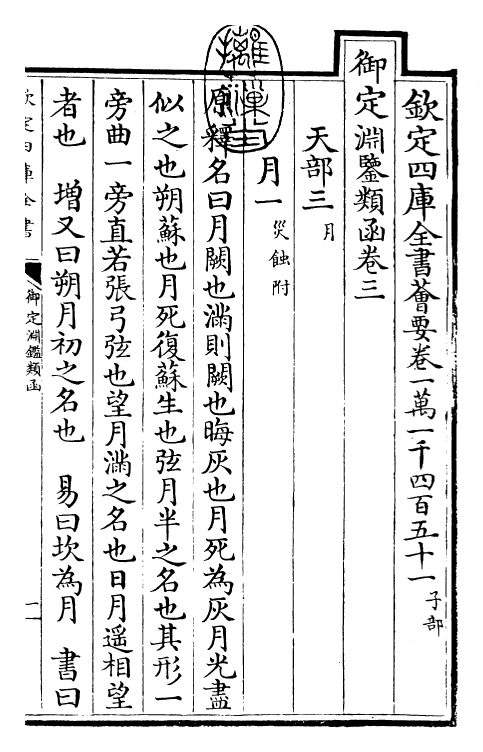 欽定四庫全書薈要卷一萬一千四百五十一 子部
御定淵鑒類函卷三
天部三 月
月一 災蝕附
原釋名曰月闕也滿則闕也晦灰也月死為灰月光盡
似之也朔蘇也月死復蘇生也弦月半之名也其形一
旁曲一旁直若張弓弦也望月滿之名也日月遥相望
者也 增又曰朔月初之名也 易曰坎為月 書曰
欽定四庫全書
御定淵鑑類函
一